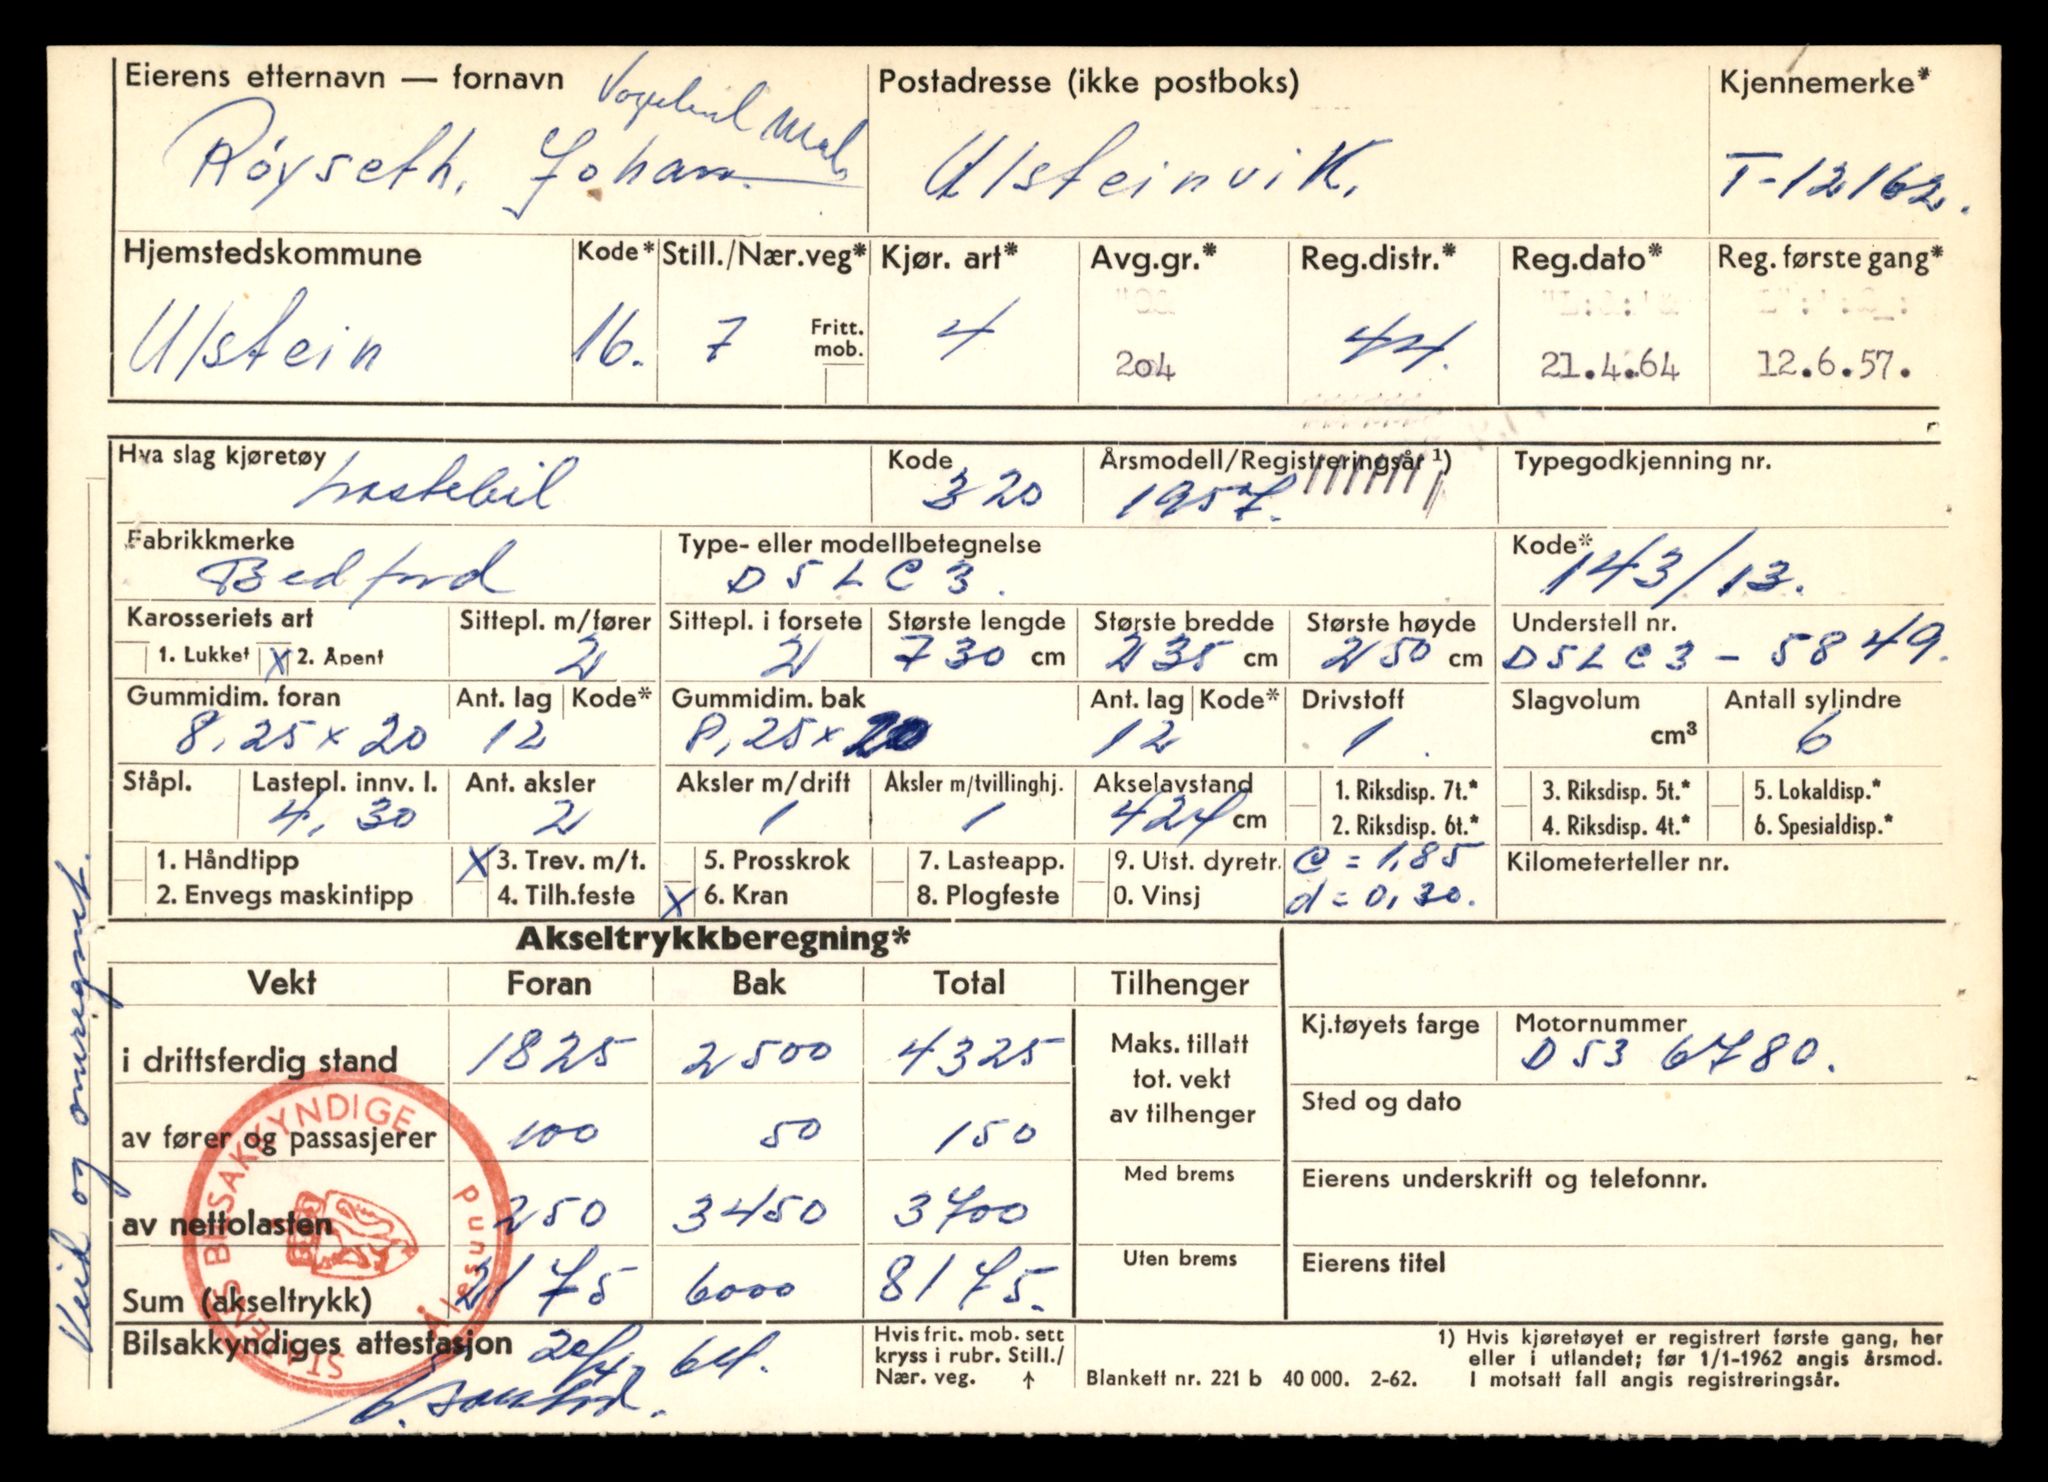 Eierens etternavn — fornavn
Postadresse (ikke postboks)
Kjennemerke*
Røyseth, Johan
Ulsteinvik.
T-12162.
Hjemstedskommune Kode* Still./Nær.veg* Kjør. art* Avg.gr.* Reg.distr.* Reg.dato* Reg. første gang*
Ulstein 16. 7 Fritt. mob. 4 204 44. 21.4.64 12.6.57.
Hva slag kjøretøy Kode Årsmodell/Registreringsår ¹) Typegodkjenning nr.
Lastebil 320 1957.
Fabrikkmerke Type- eller modellbetegnelse Kode*
Bedford D5LC3. 143/13.
Karosseriets art Sittepl. m/fører Sittepl. i forsete Største lengde Største bredde Største høyde Understell nr.
1. Lukket X 2. Åpent 2 2 730 cm 235 cm 250 cm D5LC3 - 5849.
Gummidim. foran Ant. lag Kode* Gummidim. bak Ant. lag Kode* Drivstoff Slagvolum Antall sylindre
8,25 x 20 12 8,25 x 20 12 1. cm³ 6
Ståpl. Lastepl. innv. l. Ant. aksler Aksler m/drift Aksler m/tvillinghj. Akselavstand 1. Riksdisp. 7t.* 3. Riksdisp. 5t.* 5. Lokaldisp.*
4,30 2 1 1 424 cm 2. Riksdisp. 6t.* 4. Riksdisp. 4t.* 6. Spesialdisp.*
1. Håndtipp X 3. Trev. m/t. 5. Prosskrok 7. Lasteapp. 9. Utst. dyretr. C = 1,85 Kilometerteller nr.
2. Envegs maskintipp 4. Tilh.feste X 6. Kran 8. Plogfeste 0. Vinsj d = 0,30.
Akseltrykkberegning*
Vekt Foran Bak Total Tilhenger
i driftsferdig stand 1825 2500 4325 Maks. tillatt tot. vekt av tilhenger
Kj.tøyets farge Motornummer
D53 6780.
av fører og passasjerer 100 50 150
Sted og dato
av nettolasten 250 3450 3700 Med brems
Eierens underskrift og telefonnr.
Sum (akseltrykk) 2175 6000 8175. Uten brems
Eierens titel
Bilsakkyndiges attestasjon 20/4 64.
Hvis frit. mob. sett
kryss i rubr. Still./
Nær. veg. ↑
Blankett nr. 221 b 40 000. 2-62.
1) Hvis kjøretøyet er registrert første gang, her
eller i utlandet; før 1/1-1962 angis årsmod.
I motsatt fall angis registreringsår.
STATENS BILSAKKYNDIGE Ålesund
Veid og omregnet.